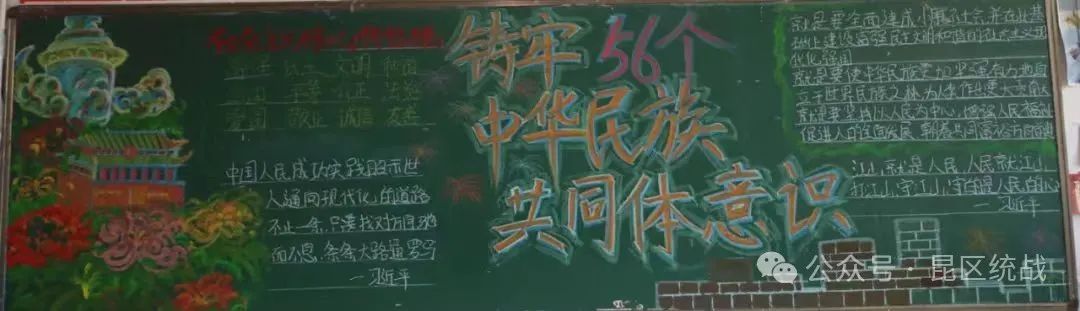 富强 民主 文明 和谐
自由 平等 公正 法治
爱国 敬业 诚信 友善
中国人民成功实践昭示世
人通向现代化的道路
不止一条,只要找对方向、驰
而不息,条条大路通罗马
—习近平
铸牢 56个
中华民族
共同体意识
就是要全面建成小康社会并在此基
础上建设富强民主文明和谐的社会主义现
代化强国
就是要使中华民族更加坚强有力地自
立于世界民族之林
促进人的全面发展,朝着共同富裕方向
江山就是人民,人民就江山
打江山,守江山,守的是人民的心
—习近平
公众号·昆区统战